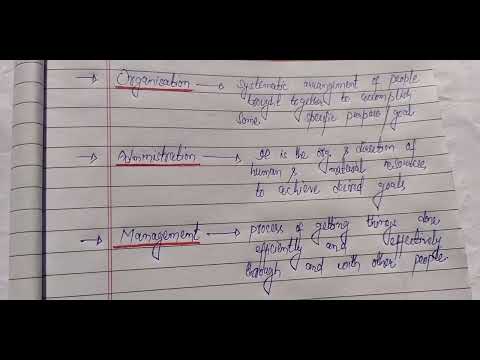 → Organisation → Systematic arrangment of people
brought together to accomplish
some specific purpose goal
→ Administration → It is the org. & direction of
human & material resources
to achieve desired goals
→ Management → process of getting things done
efficiently and effectively
through and with other people.